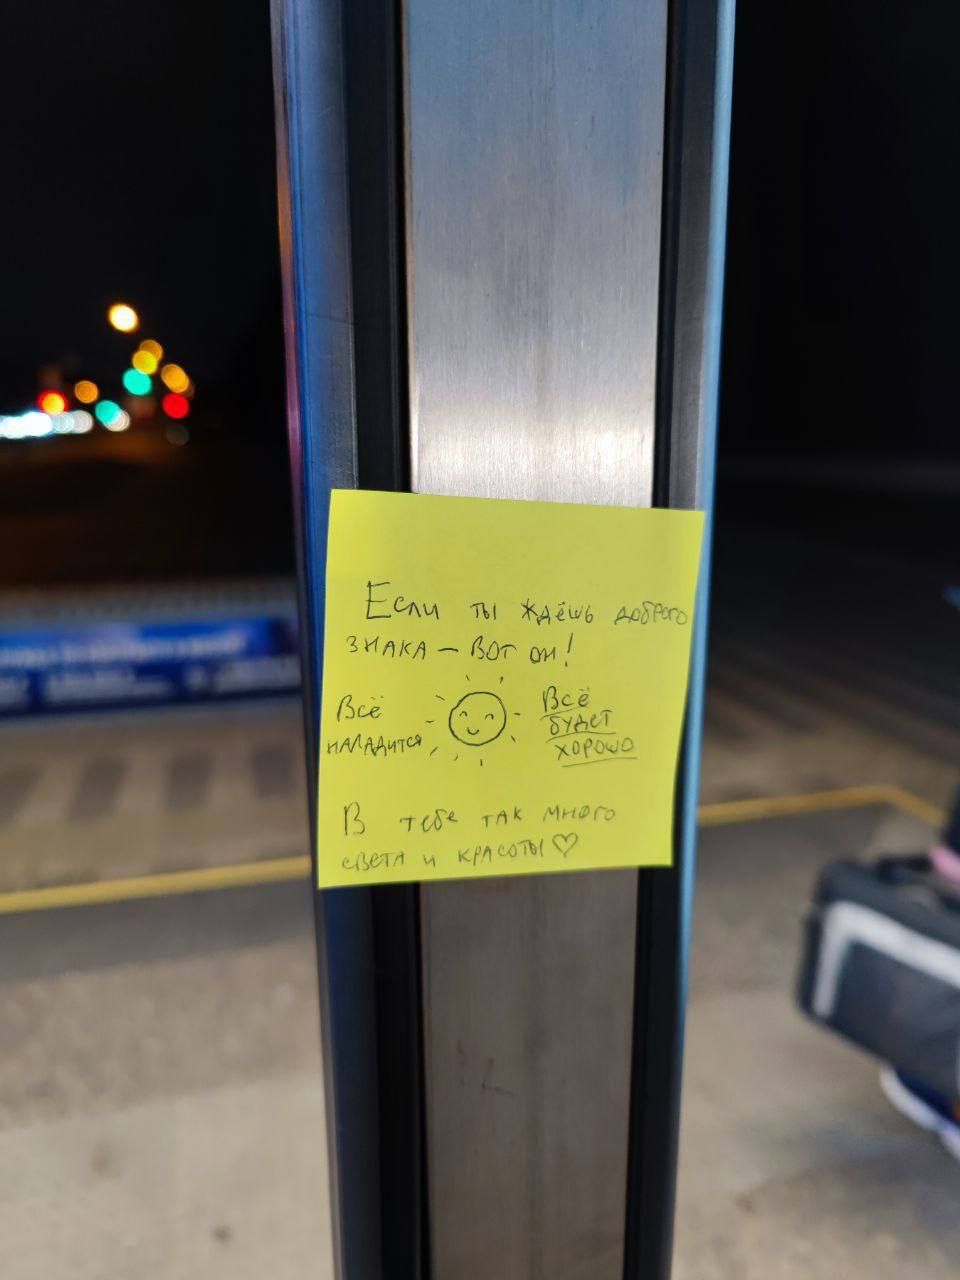 Если ты ждёшь доброго
знака – вот он!
Всё
наладится
Всё
будет
хорошо
В тебе так много
света и красоты ♡